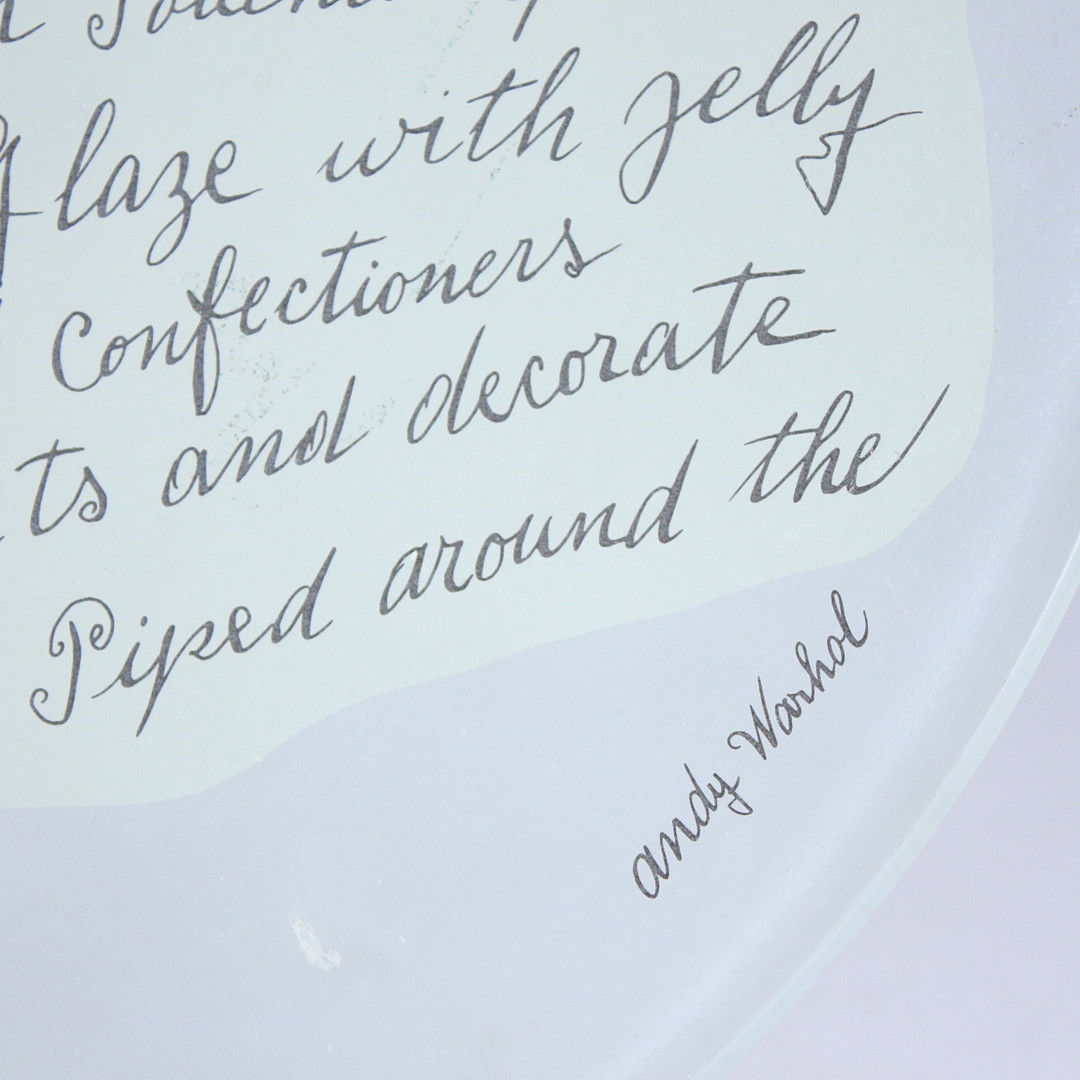 glaze with jelly
Confectioners
ts and decorate
Piped around the
andy Warhol